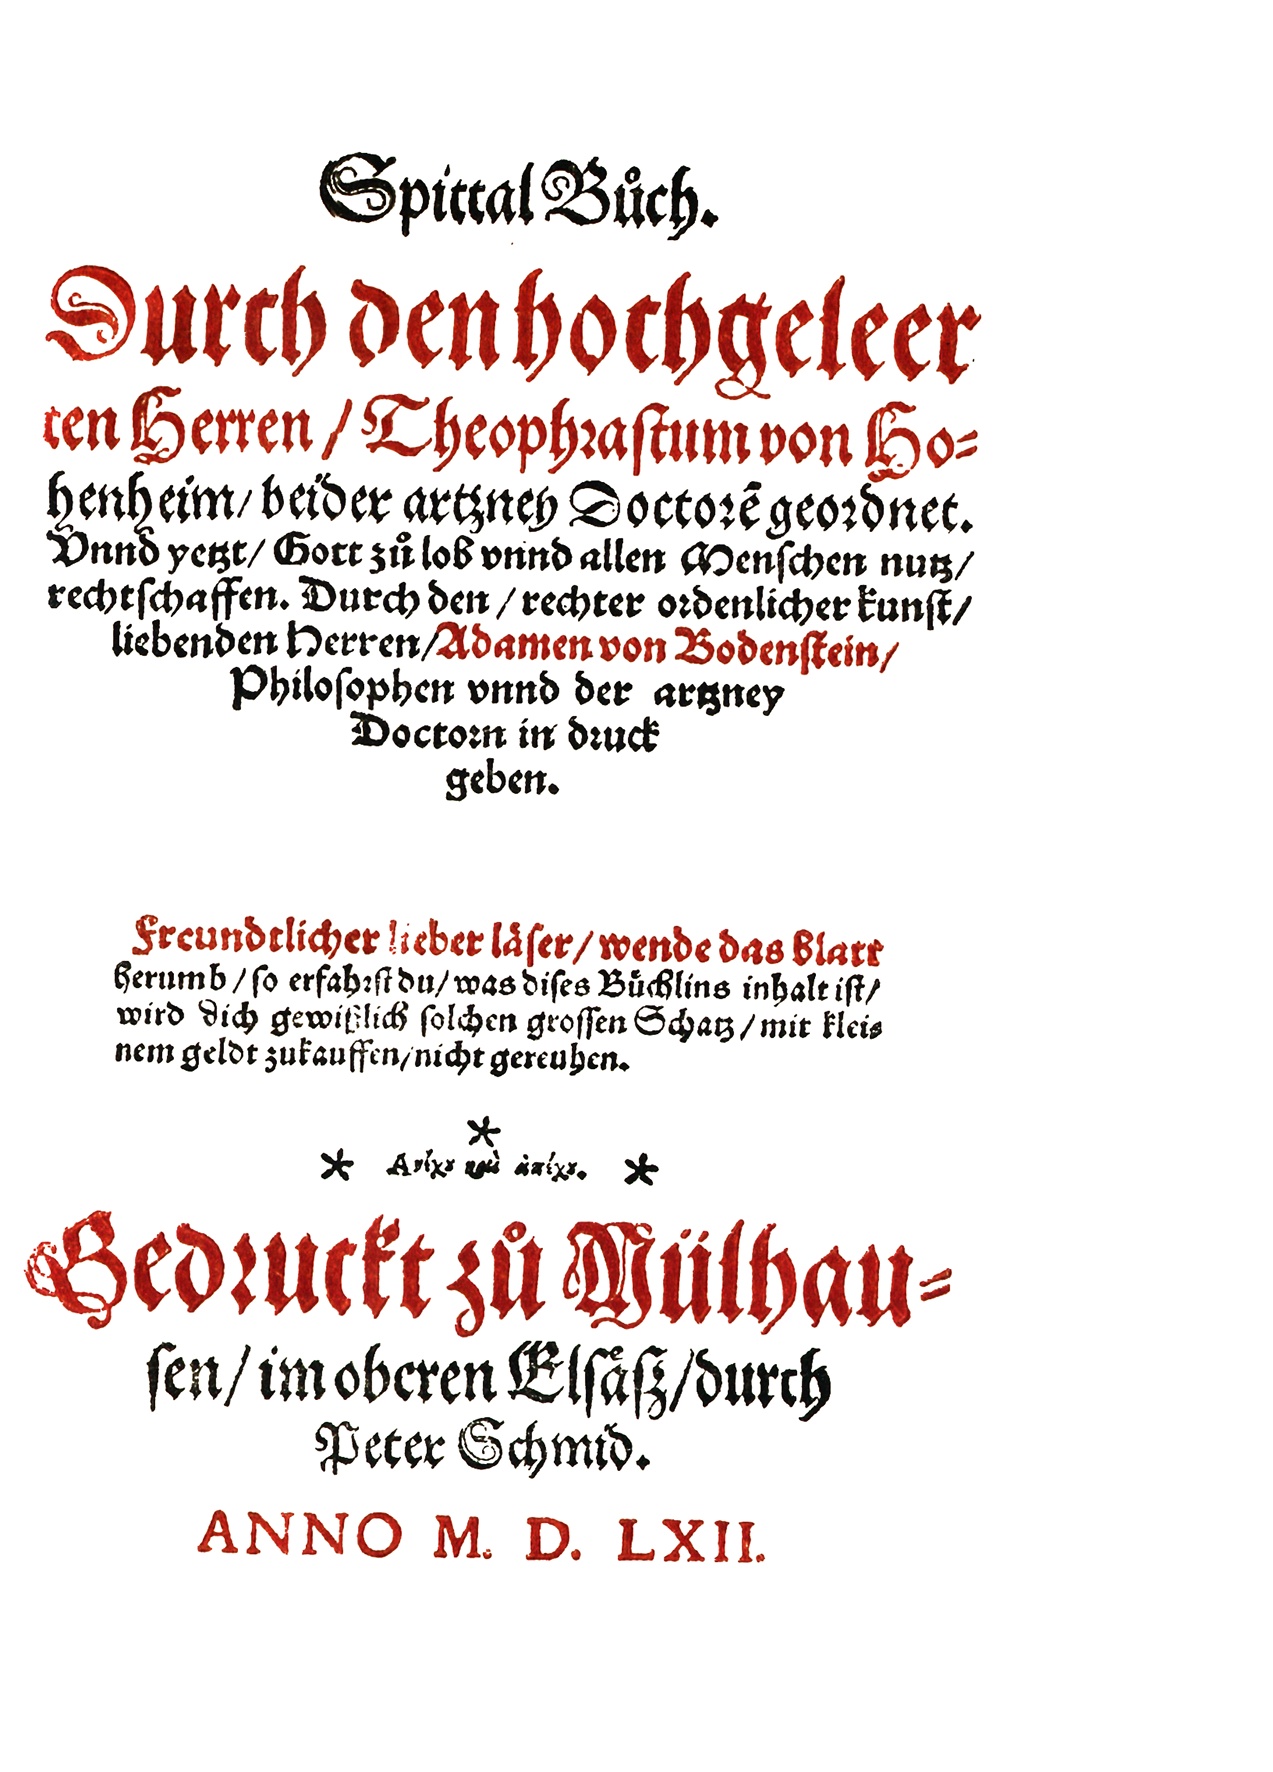 Spittal Bůch.
Durch den hochgeleer
ten Herren / Theophrastum von Ho⸗
henheim / beider artzney Doctorē geordnet.
Vnnd yetzt / Gott zů lob vnnd allen Menschen nutz /
rechtschaffen. Durch den / rechter ordenlicher kunst /
liebenden Herren / Adamen von Bodenstein /
Philosophen vnnd der artzney
Doctorn in druck
geben.
Freundtlicher lieber låser / wende das blatt
herumb / so erfahrst du / was dises Bůchlins inhalt ist /
wird dich gewißlich solchen grossen Schatz / mit klei⸗
nem geldt zukauffen / nicht gereuhen.
*
* Ανίχου καὶ ἀπίχου. *
Gedruckt zů Mülhau⸗
sen / im oberen Elsåsz / durch
Peter Schmid.
ANNO M. D. LXII.